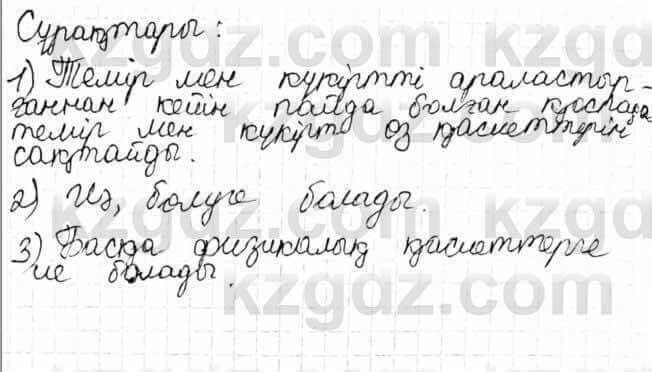 Сұрақтары:
1) Темір мен күкіртті араластыр-
ғаннан кейін пайда болған қоспада
темір мен күкірт өз қасиеттерін
сақтайды.
2) Иә, бөлуге болады.
3) Басқа физикалық қасиеттерге
ие болады.
kzgdz.com